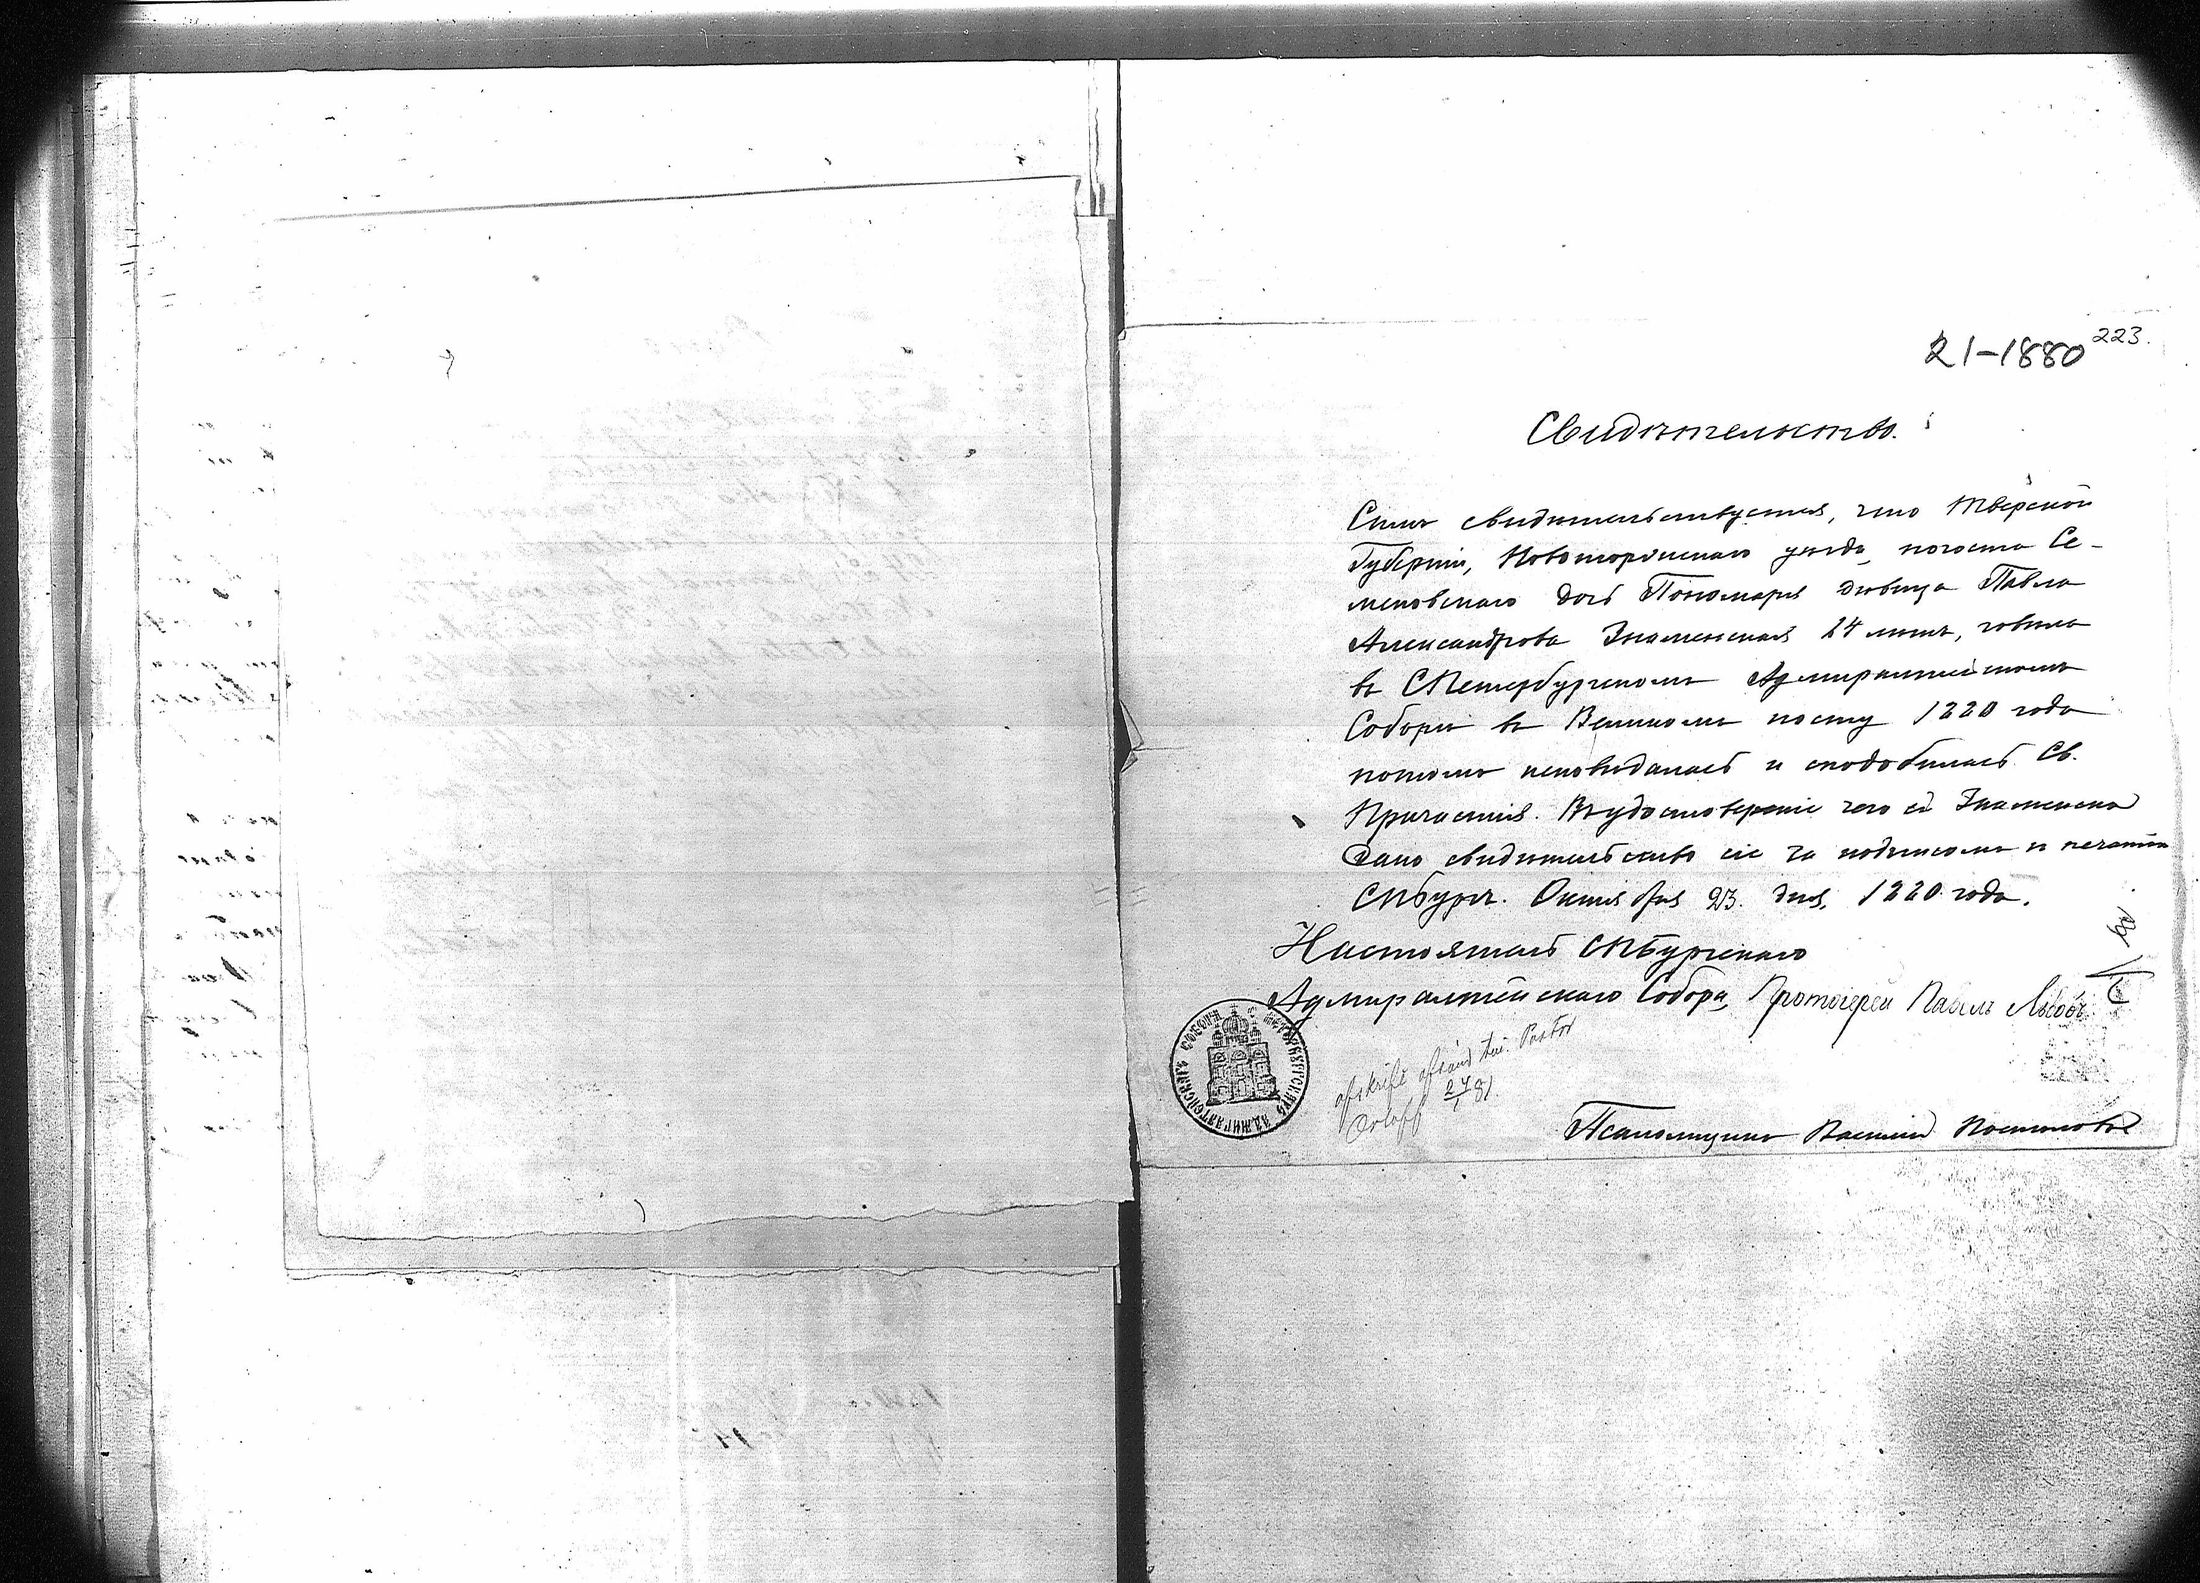 223.
21-1880
Свидѣтельство.
Симъ свидѣтельствуется, что Тверской
Губерніи, Новоторжскаго уѣзда, погоста Се-
меновскаго дочь Пономаря дѣвица Павла
Александрова Знаменская 24 лѣтъ, говѣла
въ СПетербургскомъ Адмиралтейскомъ
Соборѣ въ Великомъ посту 1880 года
потомъ исповѣдалась и сподобилась Св.
Причастія. Въ удостовѣреніе чего ей Знаменской
дано свидѣтельство сіе за подписомъ и печатію
СПбургъ. Октября 23. дня, 1880 года.
Настоятель СПбургскаго
Адмиралтейскаго Собора, Протоіерей Павелъ Львовъ
afskrift Pastor
Orloff 24/1 81.
Псаломщикъ Василій